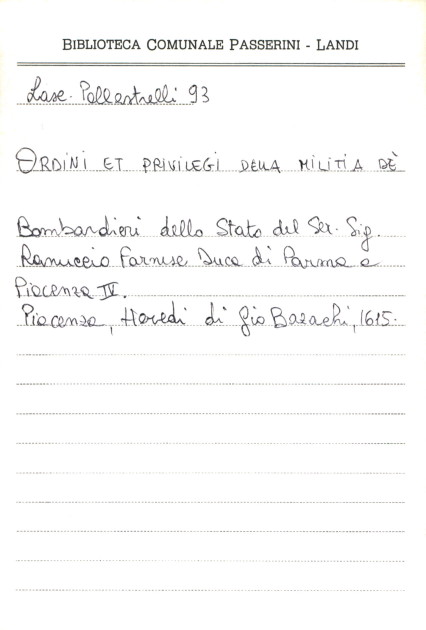 BIBLIOTECA COMUNALE PASSERINI - LANDI
Lasc. Pallastrelli 93
ORDINI ET PRIVILEGI DELLA MILITIA DÈ
Bombardieri dello Stato del Ser. Sig.
Ranuccio Farnese Duca di Parma e
Piacenza IV.
Piacenza, Heredi di Gio Bazachi, 1615.